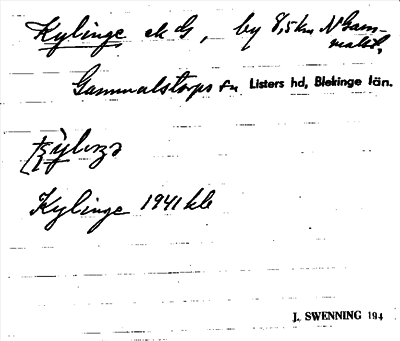 Kylinge ek G, by 8,5 km N Gam-
malst.
Gammalstorps sn Listers hd, Blekinge län.
Kylinge 1941 kb
J. SWENNING 194